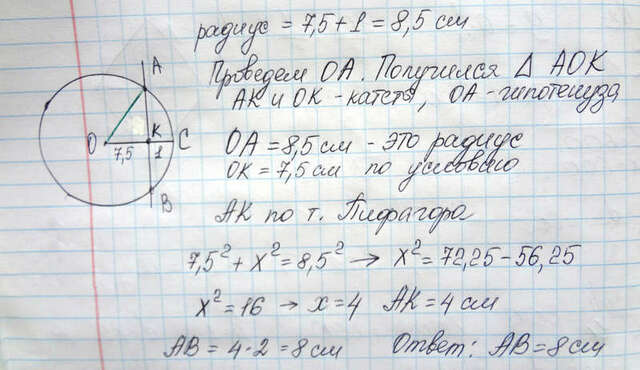 радиус = 7,5 + 1 = 8,5 см
Проведем OA. Получился △ AOK
AK и OK - катеты, OA - гипотенуза
A
O
K
C
7,5
1
B
OA = 8,5 см - это радиус
OK = 7,5 см по условию
AK по т. Пифагора
7,5² + x² = 8,5² → x² = 72,25 - 56,25
x² = 16 → x = 4 AK = 4 см
AB = 4·2 = 8 см Ответ: AB = 8 см